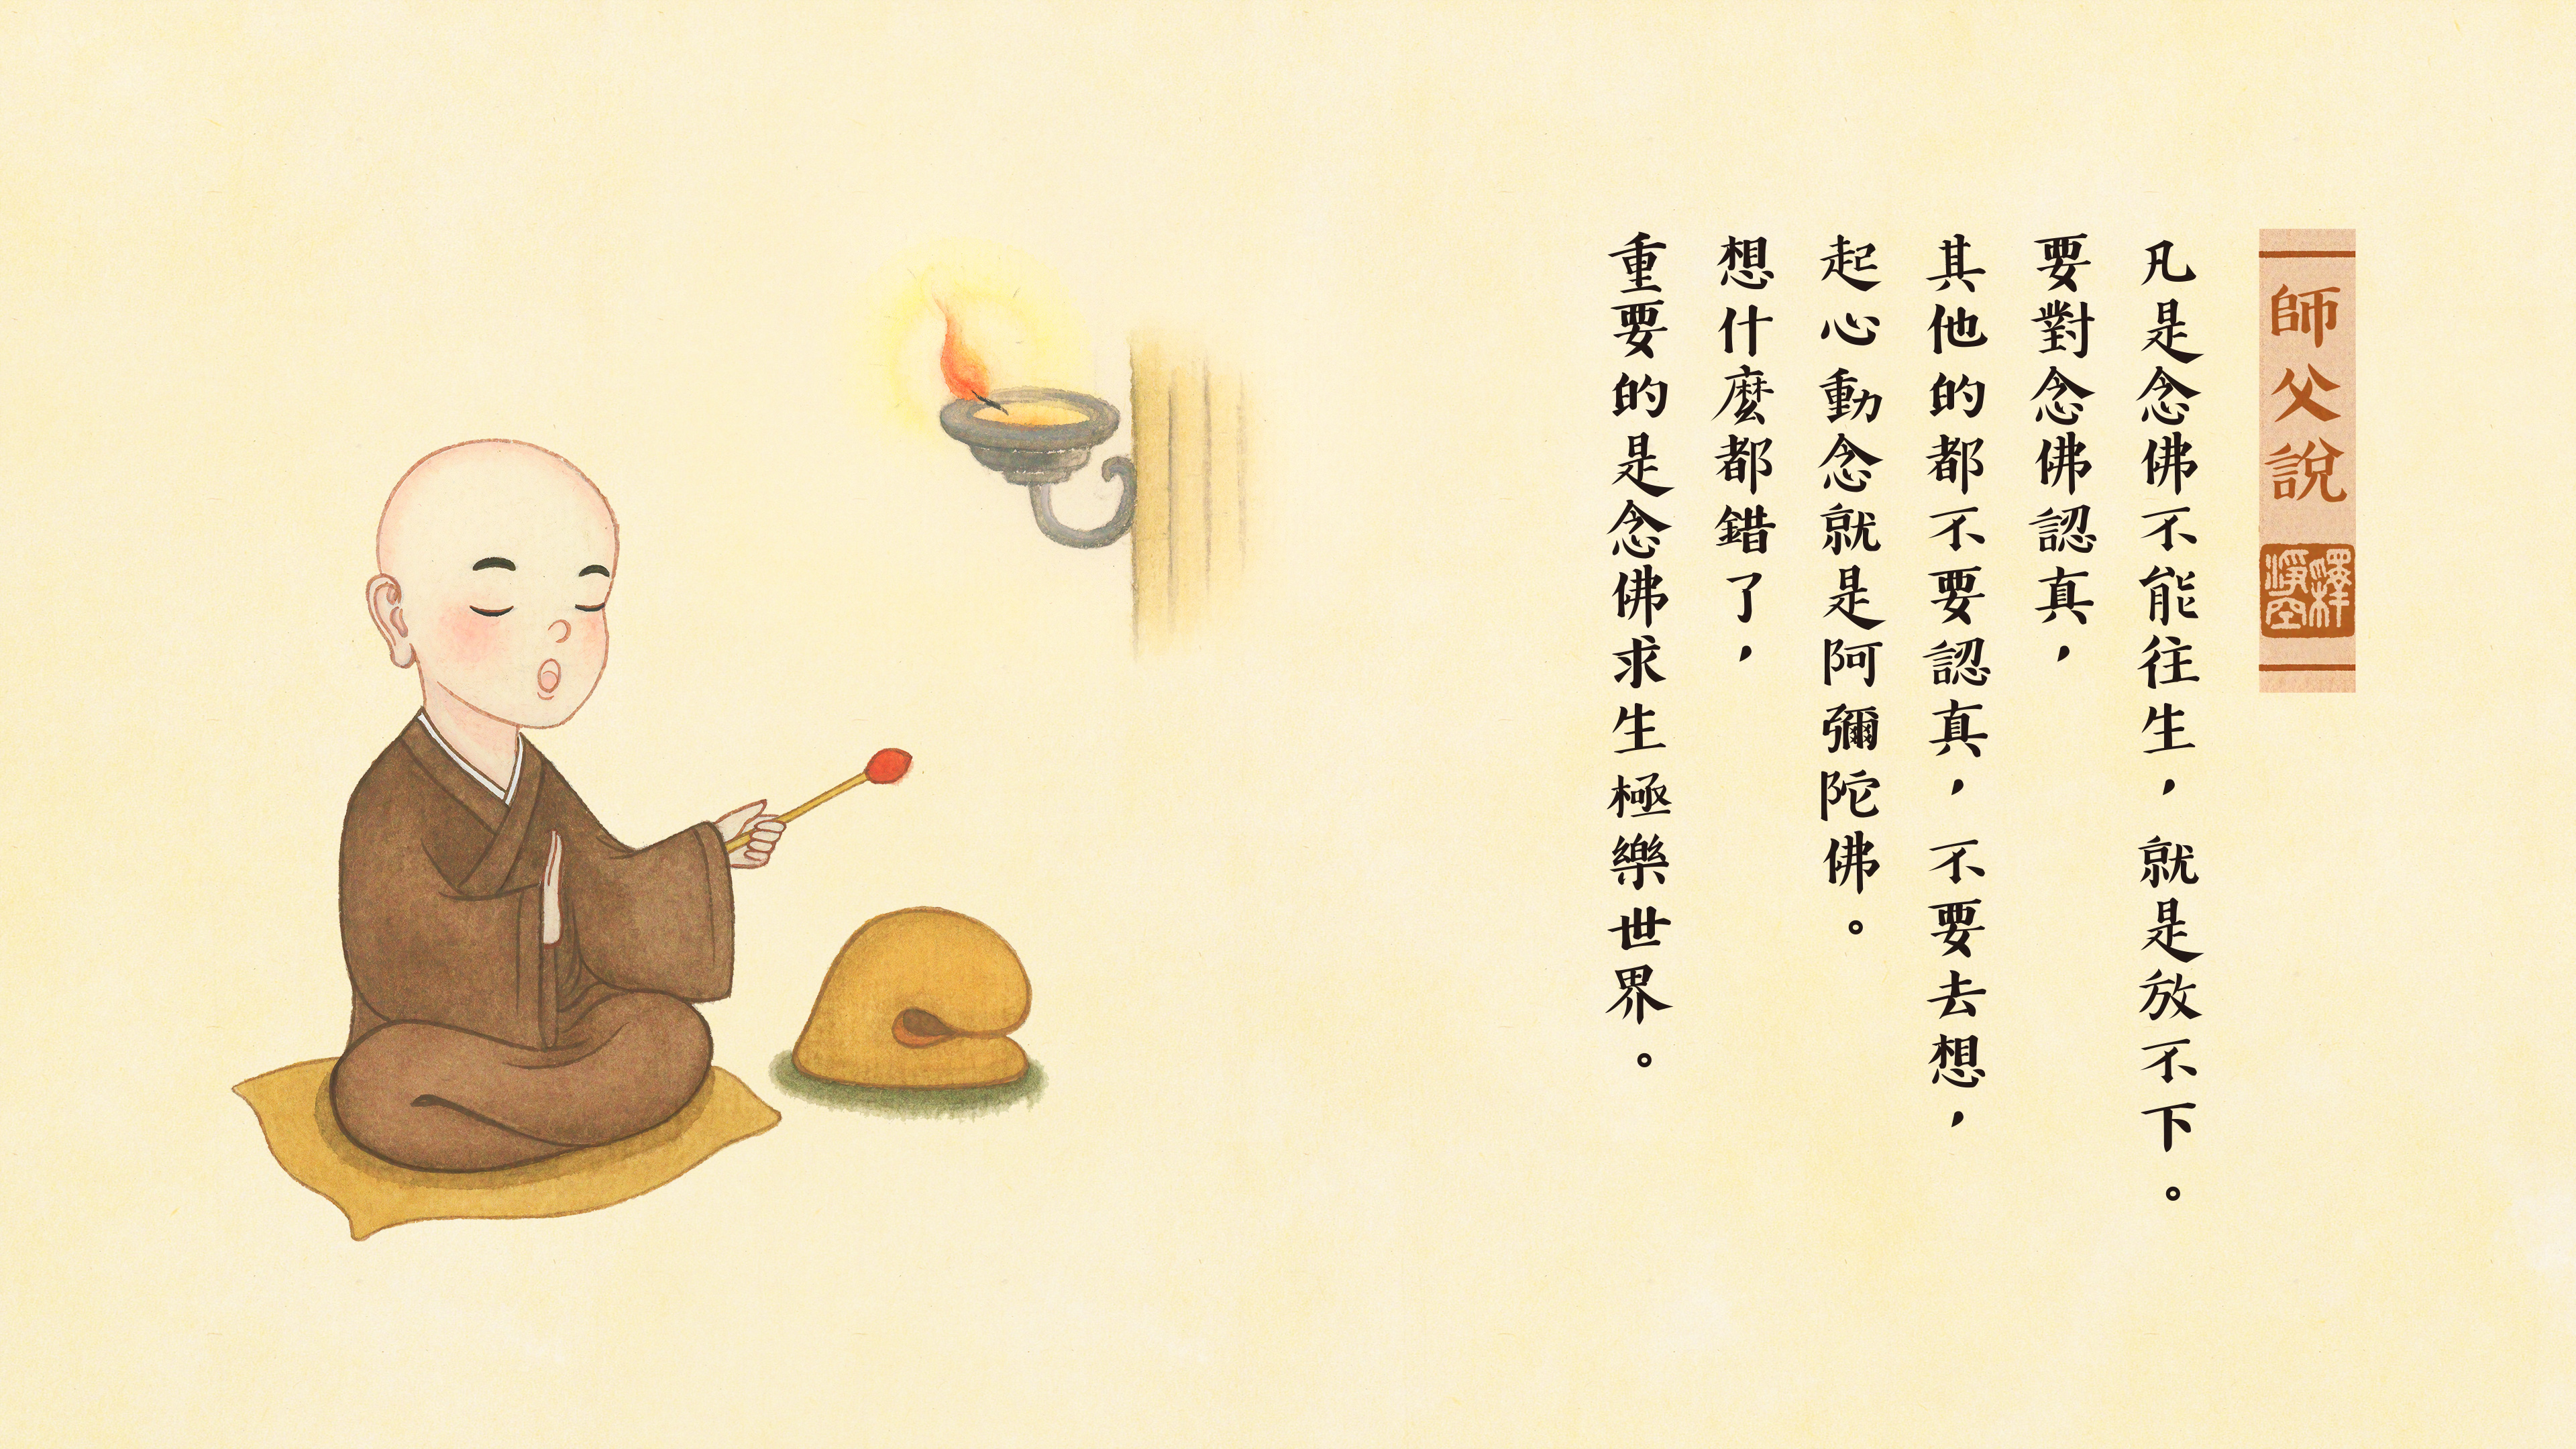 師父說
釋淨空
凡是念佛不能往生，就是放不下。
要對念佛認真，
其他的都不要認真，不要去想，
起心動念就是阿彌陀佛。
想什麼都錯了，
重要的是念佛求生極樂世界。